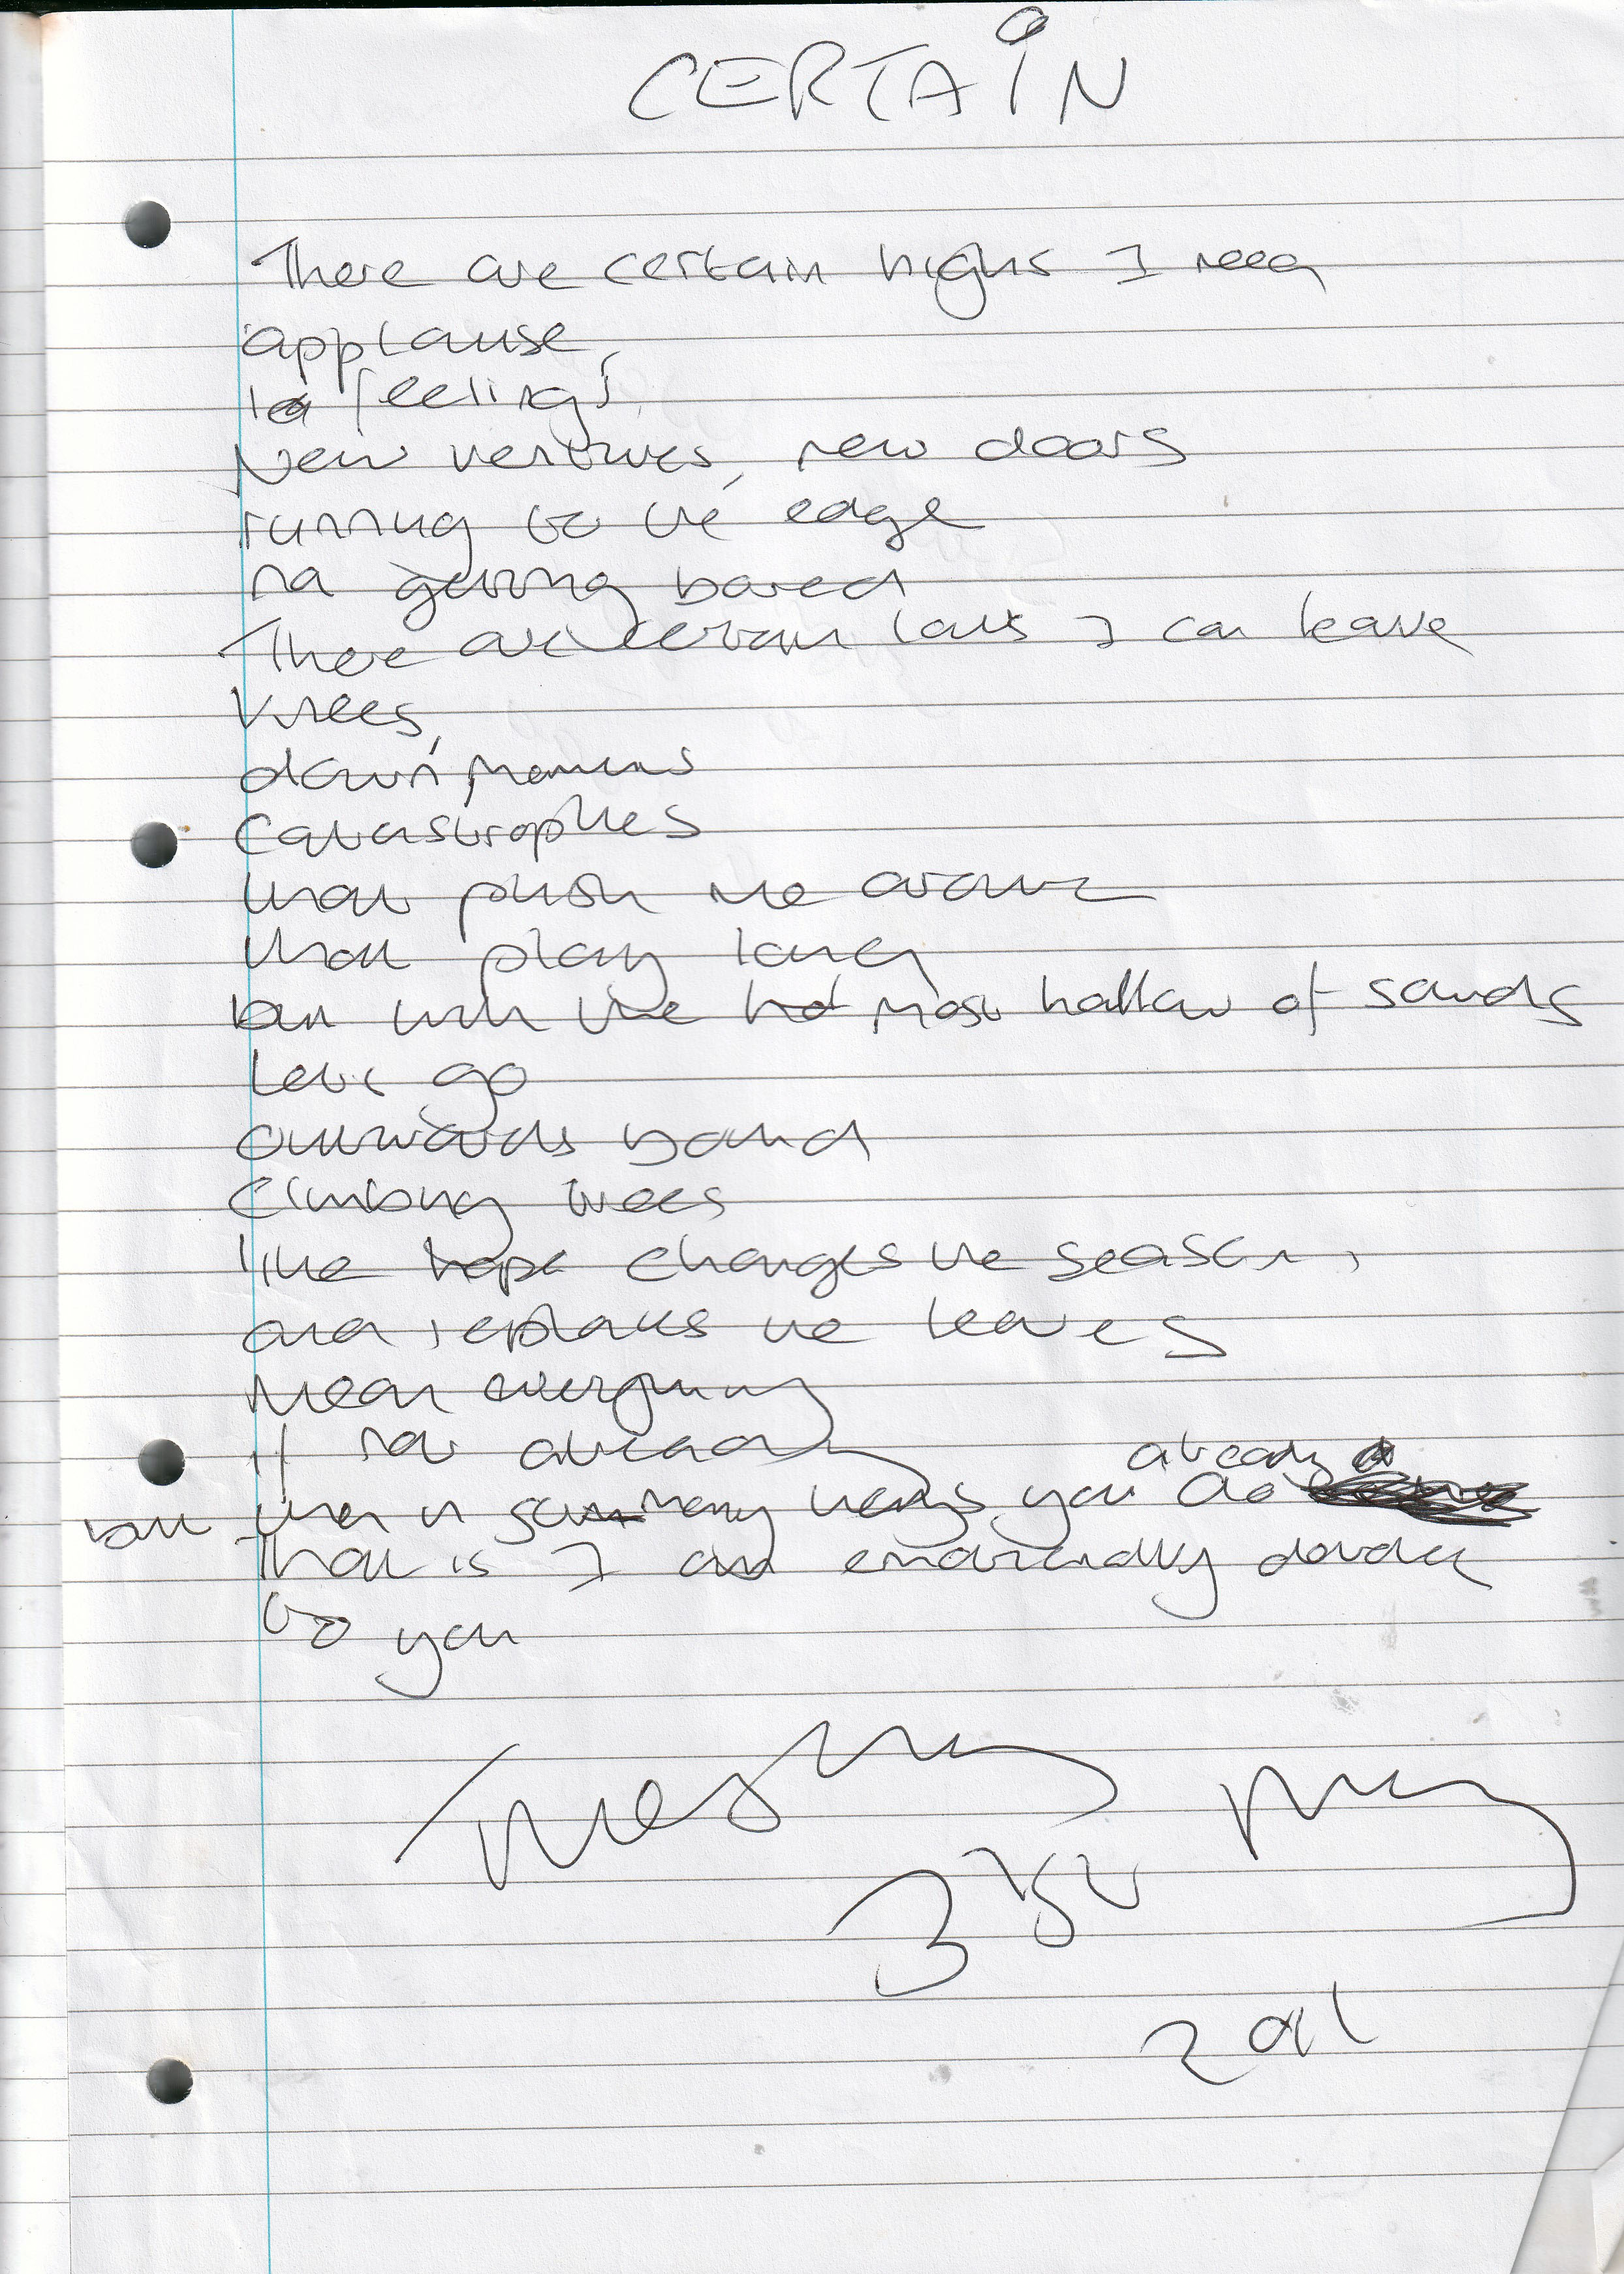 CERTAIN
There are certain highs I need
applause,
feelings,
New ventures, new doors
running to the edge
getting bored
There are certain lows I can leave
knees,
down moments
catastrophes
that push me around
that play loud
but with the most hollow of sounds
Let's go
outwards bound
climbing trees
like hope changes the season,
and replaces the leaves
Mean everything
if not already
already
but then in so many ways you do
That is I am endlessly
to you
Tuesday May
31st
2011